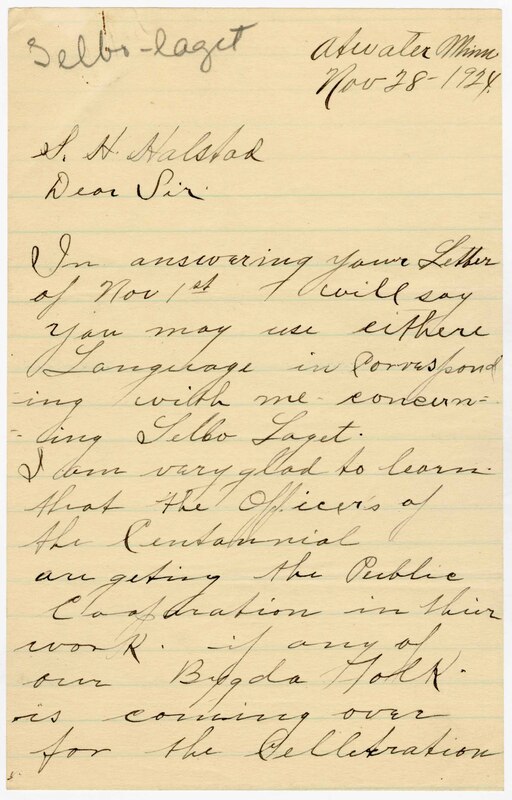 Selbo-laget
Atwater Minn
Nov 28-1924.
S. H. Halstad
Dear Sir.
In answering your Letter
of Nov 1st I will say
you may use eithere
Language in Correspond
-ing with me concern=
=ing Selbo Laget.
I am very glad to learn
that the Officers of
the Centannial
are geting the Public
Cooparation in thier
work. if any of
our Bygda Folk.
is coming over
for the Cellebration